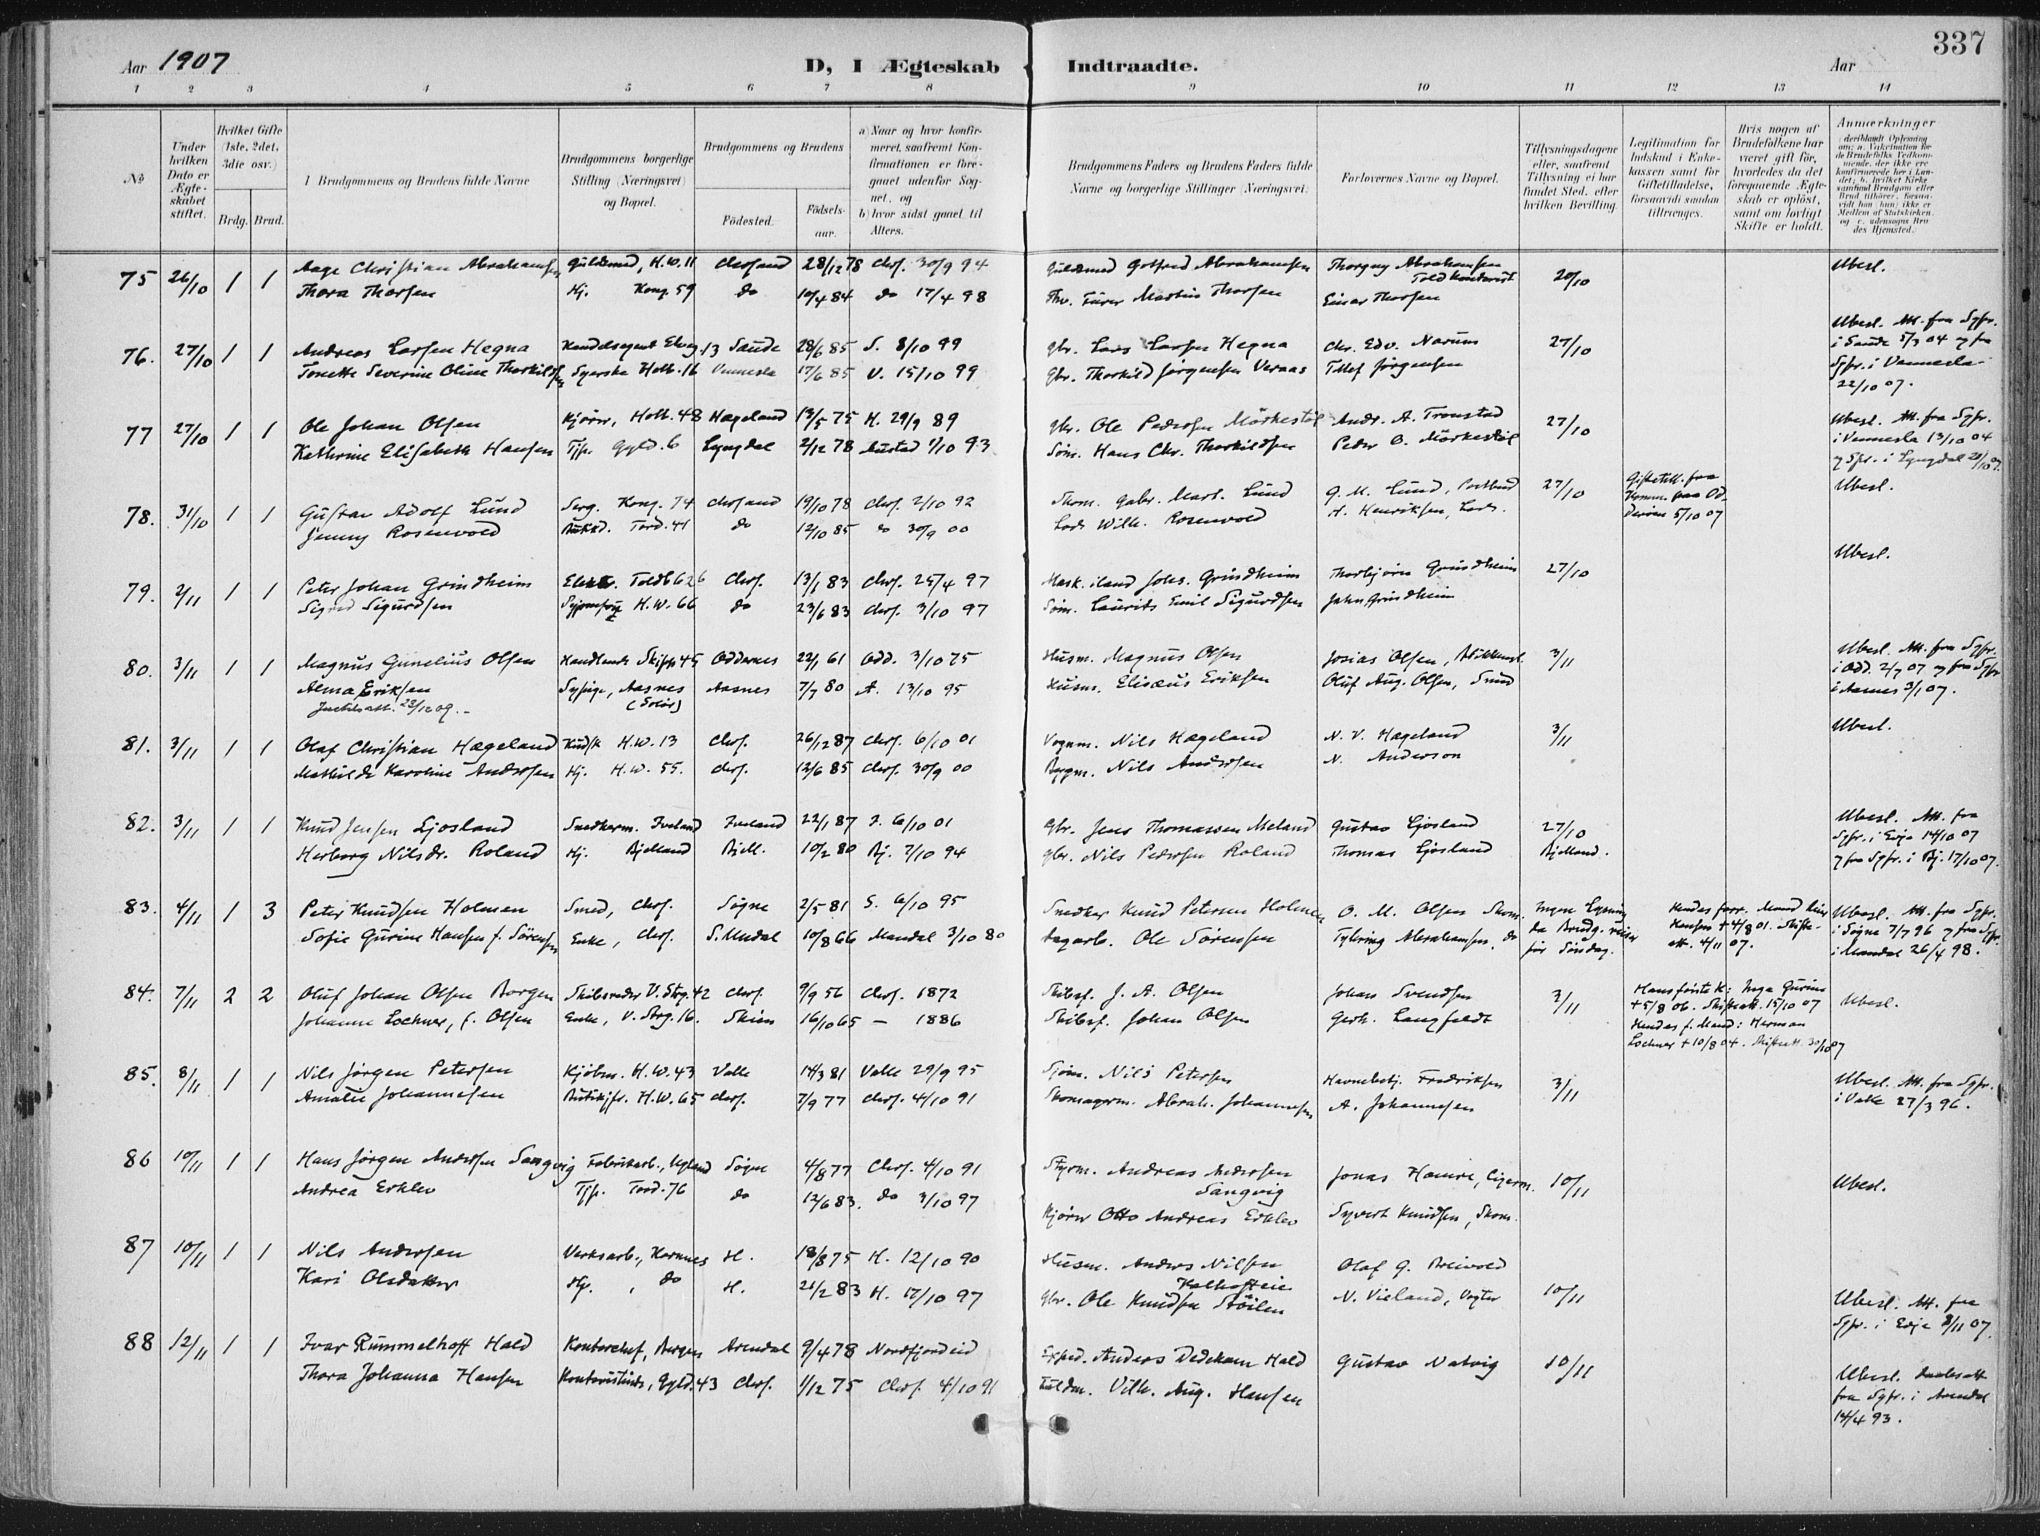 337
Aar 1907 D, I Ægteskab Indtraadte. Aar
1 2 3 4 5 6 7 8 9 10 11 12 13 14
No
Under hvilken Dato er Ægteskabet stiftet.
Hvilket Gifte (1ste, 2det, 3die osv.)
Brdg. Brud.
Brudgommens og Brudens fulde Navne
Brudgommens borgerlige Stilling (Næringsvei) og Bopæl.
Brudgommens og Brudens
Födested.
Födselsaar.
a) Naar og hvor konfirmeret, saafremt Konfirmationen er foregaaet udenfor Sognet, og
b) hvor sidst gaaet til Alters.
Brudgommens Faders og Brudens Faders fulde Navne og borgerlige Stillinger (Næringsvei)
Forlovernes Navne og Bopæl.
Tillysningsdagene eller, saafremt Tillysning ei har fundet Sted, efter hvilken Bevilling.
Legitimation for Indskud i Enkekassen samt for Giftetilladelse, forsaavidt saadan tiltrænges.
Hvis nogen af Brudefolkene har været gift för, hvorledes da det foregaaende Ægteskab er oplöst, samt om lovligt Skifte er holdt.
Anmærkninger
75 26/10 1 1 Aage Christian Abrahamsen Guldsmed, H.W. 11 Chrsand 28/12 78 Chrs. 30/9 94 Guldsmed Gotfred Abrahamsen Thorguy Abrahamsen 20/10 Ubesl.
Thora Thorsen Hj. Kong. 59 do 10/4 84 do 17/4 98 Martin Thorsen Einar Thorsen
76. 27/10 1 1 Andreas Larsen Hegna 13 Saude 28/6 85 S. 8/10 99 Gbr. Lars Larsen Hegna Chr. Edv. Narum 27/10 Ubesl. Att. fra Sgpr. i Saude 5/3 04 og fra
Tonette Severine Oline Thorkildsen Syerske Holb. 16 Vennesla 17/6 85 V. 15/10 99 Gbr. Thorkild Jørgensen Veraas Tllef Jørgensen Sgpr. i Vennesla 22/10 07.
77 27/10 1 1 Ole Johan Olsen Kjörer, Holb. 48 Hægeland 13/5 75 H. 29/9 89 Gbr. Ole Pedersen Mörkestøl Andr. A. Tronstad 27/10 Ubesl. Att. fra Sgpr. i Vennesla 13/10 04
Kathrine Elisabeth Hansen Tjp. Gyld. 6 Lyngdal 2/12 78 Austad 1/10 93 Søm. Hans Chr. Thorkildsen Peder O. Mörkestøl og Spr. i Lyngdal 21/10 07.
78. 31/10 1 1 Gustav Adolf Lund Serg. Kong. 74 Chrsand 19/10 78 Chrs. 2/10 92 Skom. Gabr. Mart. Lund G. M. Lund, Postbud 27/10 Giftetill. fra Komm. paa Odderøen 5/10 07 Ubesl.
Jenny Rosenvold Tord. 41 do 12/10 85 do 30/9 00 Lods Wilh. Rosenvold H. Henriksen, Lods.
79. 2/11 1 1 Peter Johan Grindheim Toldb 62 Chrs. 13/1 83 Chrs. 25/4 97 Mask. iland Johs. Grindheim Thorbjörn Grindheim 27/10 Ubesl.
Signe Sigurdsen H.W. 66 do 23/6 83 Chrs. 3/10 97 Söm. Laurits Emil Sigurdsen John Grindheim
80. 3/11 1 1 Magnus Gunelius Olsen Handlende Skipp. 45 Oddernes 22/1 61 Odd. 3/10 75 Husm. Magnus Olsen Josias Olsen, 3/11 Ubesl. Att. fra Sgpr. i Odd. 2/7 07 og fra Sgpr
Alma Eriksen Sypige, Aasnes (Solør) Aasnes 7/7 80 A. 13/10 95 Husm. Elisæus Eriksen Oluf Aug. Olsen, Smed i Aasnes 3/1 07.
81. 3/11 1 1 Olaf Christian Hægeland Kudsk H.W. 13 Chrs. 26/12 87 Chrs. 6/10 01 Vognm. Nils Hægeland N. V. Hægeland 3/11 Ubesl.
Mathilde Karoline Andersen Hj. H.W. 55. Chrs. 12/6 85 Chrs. 30/9 00 Bygm. Nils Andersen N. Anderson
82. 3/11 1 1 Knud Jensen Ljosland Snedkerm. Iveland Iveland 22/1 87 I. 6/10 01 Gbr. Jens Thomassen Meland Gustav Ljosland 27/10 Ubesl. Att. fra Sgpr. i Evje 14/10 07
Herborg Nilsdr. Roland Hj. Bjelland Bjell. 10/2 80 Bj. 7/10 94 Gbr. Nils Pedersen Roland Thomas Ljosland Bjelland. og fra Sgpr. i Bj. 17/10 07.
83. 4/11 1 3 Peter Knudsen Holmen Smed, Chrs. Søgne 2/5 81 S. 6/10 95 Snedker Knud Petersen Holmen O. M. Olsen Skom. Ingen Lysning da Brudg. reiser før Søndag. Hendes forr. Mand Hansen + 4/8 01. Skifteatt. 4/11 07. Ubesl. Att. fra Sgpr. i Søgne 7/7 96 og fra Sgpr.
Sofie Gurine Hansen f. Sörensen Enke, Chrs. S. Undal 10/8 66 Mandal 3/10 80 Ole Sörensen Abrahamsen, do i Mandal 26/4 98.
84. 7/11 2 2 Oluf Johan Olsen Borgen Skibsreder V. Strg. 42 Chrs. 9/9 56 Chrs. 1872 Skibsf. J. A. Olsen Johan Svendsen 3/11 Hans første K: Inga Gurine + 5/8 06. Skifteatt. 15/10 07 Ubesl.
Johanne Lochner, f. Olsen Enke, V. Strg. 16. Skien 16/10 65 — 1886 Skibsf. Johan Olsen Gerh. Langfeldt Hendes f. Mand: Herman Lochner + 10/8 04. Skifteatt. 30/10 07
85. 8/11 1 1 Nils Jørgen Petersen Kjøbm. H.W. 43 Valle 14/3 81 Valle 29/9 95 Sjöm. Nils Petersen Havnebetj. Fredriksen 3/11 Ubesl. Att. fra Sgpr. i Valle 27/3 96.
Amalie Johannesen Butikjfr. H.W. 65 Chrs. 7/9 77 Chrs. 4/10 91 Skomagerm. Abrah. Johannesen A. Johannesen
86 10/11 1 1 Hans Jørgen Andersen Sangvig Fabrikarb., Vegland Søgne 4/8 77 Chrs. 4/10 91 Styrm. Andreas Andersen Sangvig Jonas Homre, 10/11 Ubesl.
Andrea Erklev Tjp. Tord. 76 do 12/6 83. do 3/10 97 Kjörer Otto Andreas Erklev Syvert Knudsen, Skom.
87 10/11 1 1 Nils Andersen Verksarb., Hornnes H. 18/8 75 H. 12/10 90 Husm. Anders Nilsen Olaf G. Breivold 10/11 Ubesl. Att. fra Sgpr. i Evje 8/11 07.
Kari Olsdatter Hj., do H. 21/2 83 H. 17/10 97 Gbr. Ole Knudsen Støilen N. Vieland, Vogter
88 12/11 1 1 Ivar Rummelhoff Hald Kontorchef, Bergen Arendal 9/4 78 Nordfjordeid Exped. Anders Dedekam Hald Gustav Natvig 10/11 Ubesl. Daabsatt fra Sgpr. i Arendal 14/4 93.
Thora Johanna Hansen Gyld. 43 Chrs. 1/12 75 Chrs. 4/10 91 Vilh. Aug. Hansen